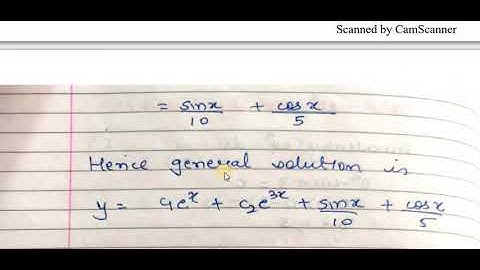 Scanned by CamScanner
= sinx/10 + cosx/5
Hence general solution is
y = c₁eˣ + c₂e³ˣ + sinx/10 + cosx/5